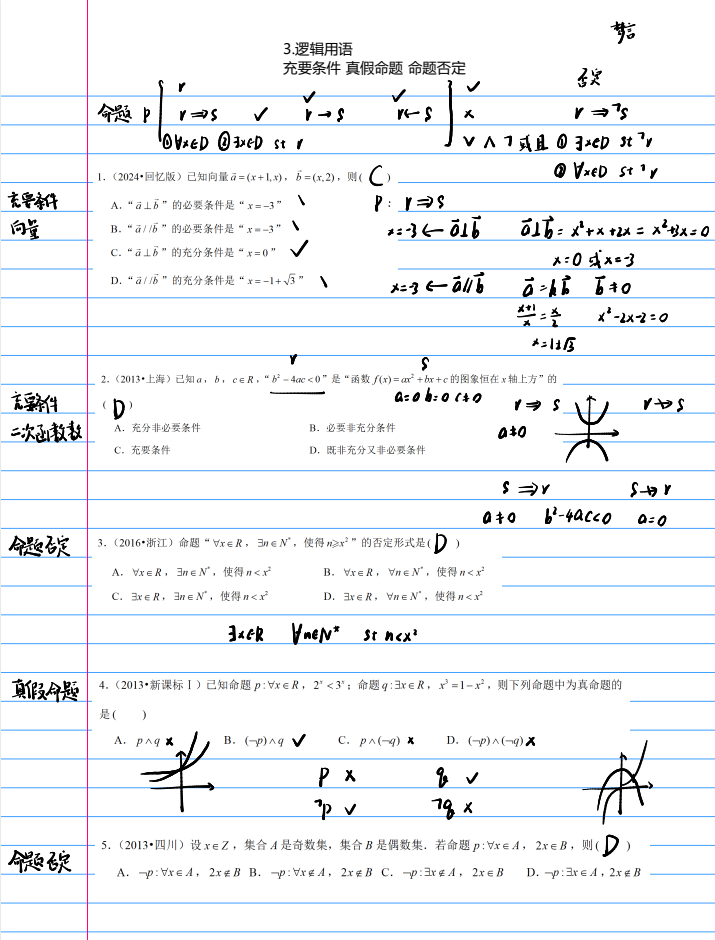 3.逻辑用语
充要条件 真假命题 命题否定
否定
命题 p r r⇒s ✓ r→s ✓ r←s ✓ ✓ × r⇒¬s
①∀x∈D ②∃x∈D st r ∨ ∧ ¬ 或且 ①∃x∈D st ¬r
②∀x∈D st ¬r
充要条件
向量
1.（2024•回忆版）已知向量a⃗=(x+1,x)，b⃗=(x,2)，则( C )
A．“a⃗⊥b⃗”的必要条件是“x=−3” \
B．“a⃗//b⃗”的必要条件是“x=−3” \
C．“a⃗⊥b⃗”的充分条件是“x=0” ✓
D．“a⃗//b⃗”的充分条件是“x=−1+√3” \
p：r⇒s
x=-3 ← a⃗⊥b⃗ a⃗⊥b⃗= x²+x+2x = x²+3x=0
x=0 或 x=-3
x=-3 ← a⃗//b⃗ a⃗=λb⃗ b⃗≠0
(x+1)/x = x/2 x²-2x-2=0
x=1±√3
充要条件
二次函数
r s
2.（2013•上海）已知a，b，c∈R，“b²−4ac<0”是“函数f(x)=ax²+bx+c的图象恒在x轴上方”的
( D ) a=0 b=0 c≠0 r⇒s r↛s
A．充分非必要条件 B．必要非充分条件 a≠0
C．充要条件 D．既非充分又非必要条件
s⇒r s↛r
a≠0 b²-4ac<0 a=0
命题否定
3.（2016•浙江）命题“∀x∈R，∃n∈N*，使得n⩾x²”的否定形式是( D )
A．∀x∈R，∃n∈N*，使得n<x² B．∀x∈R，∀n∈N*，使得n<x²
C．∃x∈R，∃n∈N*，使得n<x² D．∃x∈R，∀n∈N*，使得n<x²
∃x∈R ∀n∈N* st n<x²
真假命题
4.（2013•新课标Ⅰ）已知命题p:∀x∈R，2ˣ<3ˣ；命题q:∃x∈R，x³=1−x²，则下列命题中为真命题的
是( )
A．p∧q × B．(¬p)∧q ✓ C．p∧(¬q) × D．(¬p)∧(¬q) ×
p × q ✓
¬p ✓ ¬q ×
命题否定
5.（2013•四川）设x∈Z，集合A是奇数集，集合B是偶数集．若命题p:∀x∈A，2x∈B，则( D )
A．¬p:∀x∈A，2x∉B B．¬p:∀x∉A，2x∉B C．¬p:∃x∉A，2x∈B D．¬p:∃x∈A，2x∉B